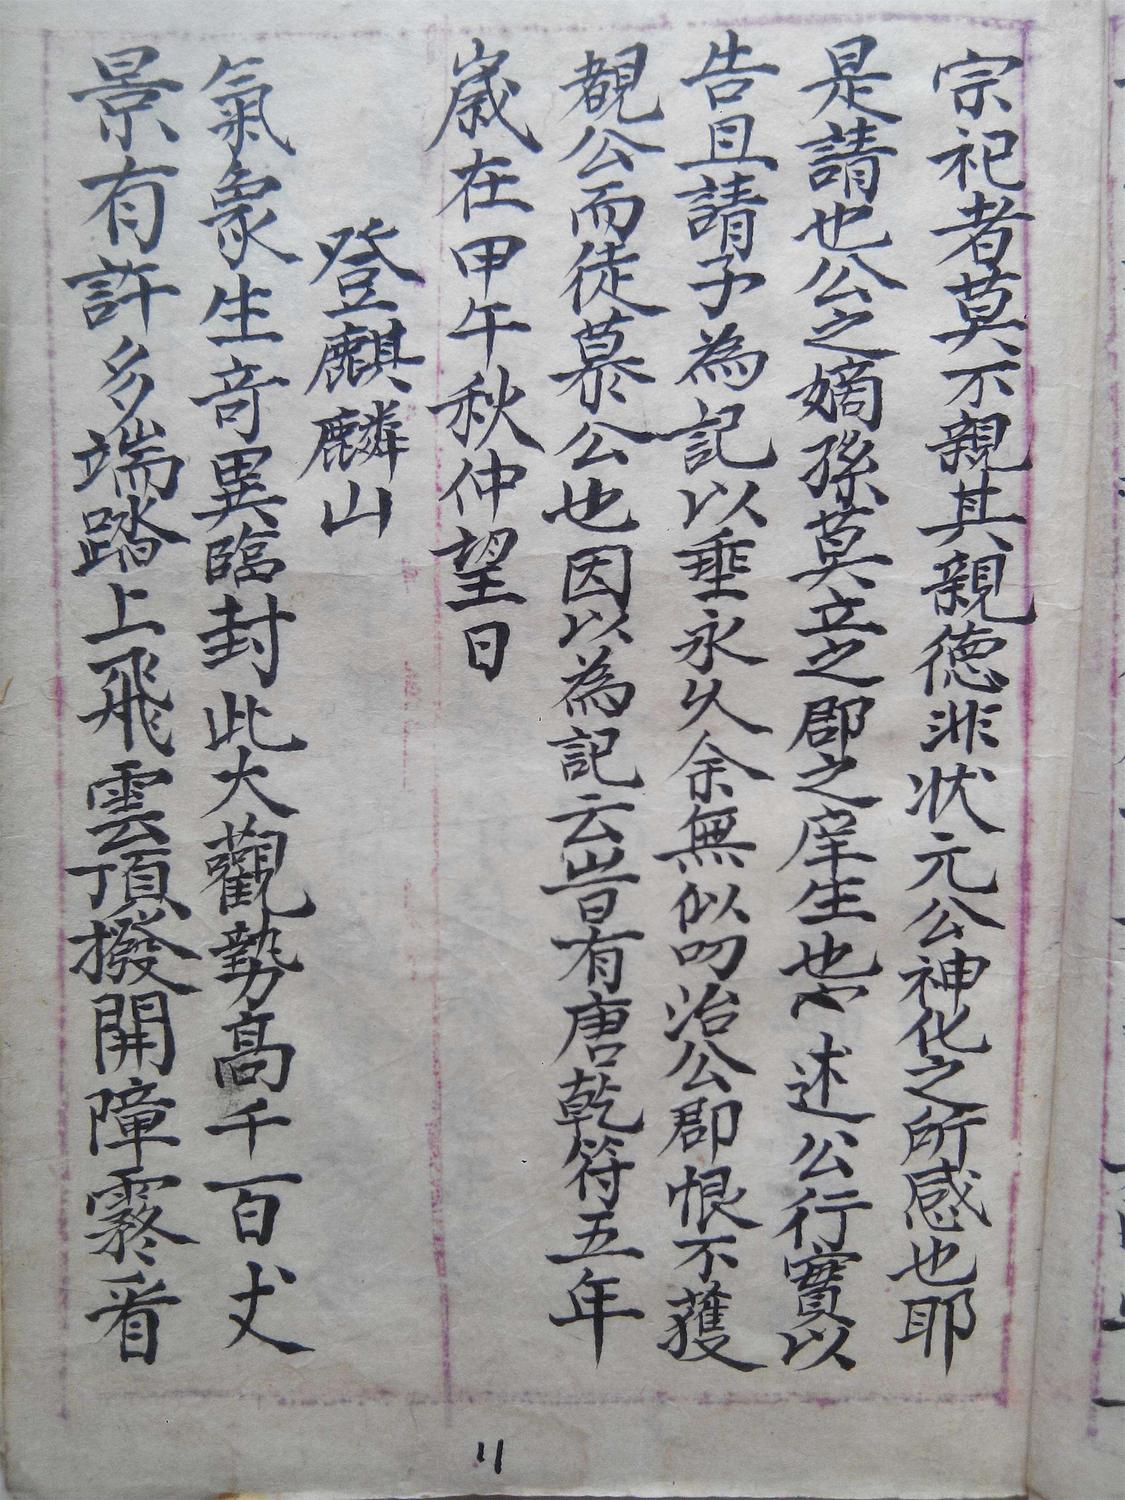 宗祀者莫不親其親德非状元公神化之所感也耶
是請也公之嫡孫莫立之郡之庠生也述公行實以
告且請予為記以垂永久余無似叨治公郡恨不獲
覩公而徒慕公也因以為記云旹有唐乾符五年
嵗在甲午秋仲望日
登麒麟山
氣象生竒異臨封此大觀勢髙千百丈
景有許多端踏上飛雲頂撥開障霧看
11